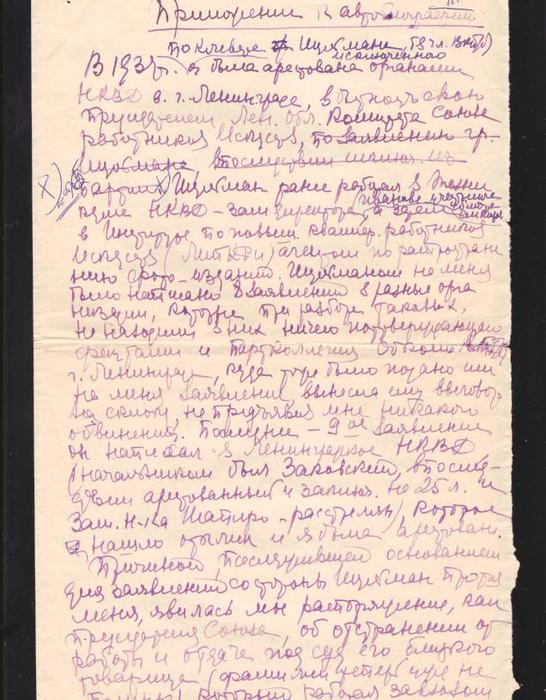 Приложение к автобиографии
по клевете Ицикмана, б/чл. ВКП(б)
исключенного
В 1937 г. я была арестована органами
НКВД в г. Ленинграде, в бытность свою
председателем Лен. обл. Комитета Союза
работников Искусств, по заявлению гр.
впоследствии
партии Ицикман ранее работал в
НКВД – зам директора, а затем
в Институте по повыш. квалиф. работников
Искусств агентом по распростране
нию изданий. Ицикманом на меня
было написано 8 заявлений в разные орга
низации, которые при разборе таковых,
не находили в них ничего подтверждающего
фактами и партколлегия Обкома ВКП(б)
г. Ленинграда, куда тоже было подано им
на меня заявление, вынесла ему выговор
за склоку, не предъявив мне никакого
обвинения. Последнее – 9ое заявление
он написал в Ленинградское НКВД
(начальником был Заковский, впослед-
ствии арестованный и заключ. на 25 л. и
Зам. н-ка Шапиро – расстрелян), которое
нашло отклик и я была арестована.
Причиной, послужившей основанием
для заявлений со стороны Ицикман против
меня, явилась мое распоряжение, как
председателя Союза, об отстранении от
работы и отдаче под суд его близкого
товарища (фамилии теперь уже не
помню), который работал